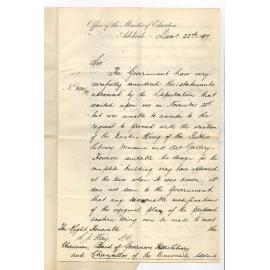 Office of the Minister of Education,
Adelaide Dec 22nd 1897
Sir
The Government have very
carefully considered the statements
advanced by the Deputation that
waited upon me on November 30th
but are unable to accede to the
request to proceed with the erection
of the Eastern Wing of the Public
Library Museum and Art Gallery.
However suitable the design for the
complete building may have appeared
at the time when it was drawn, it
does not seem to the Government
that any reasonable modification
of the original plan of the proposed
eastern Wing can be made to meet
the
The Right Honorable
S. J. Way
Chairman, Board of Governors
and Chancellor of the University, Adelaide